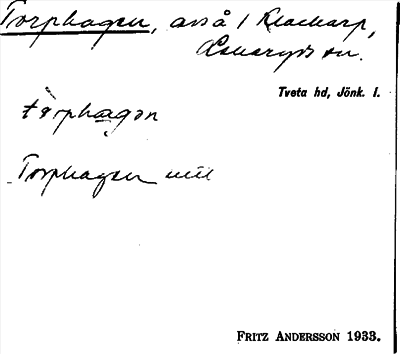 Torphagen, avs å 1 Klackarp,
Lekeryds sn.
Tveta hd, Jönk. l.
tårphagən
Torphagen
FRITZ ANDERSSON 1933.